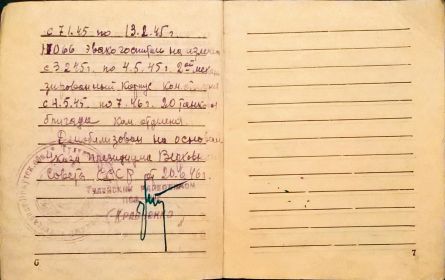 с 7.1.45 по 13.2.45г.
1066 Эвакогоспитал на излечен
с 3.2.45г. по 4.5.45г. 2ой механ
зированный Корпус Ком. отделен
с 4.5.45 по 7.46г. 20 танков
бригада Ком отделен
Демобилизован на основан
Указа Президиума Верховн
Совета СССР от 20.3.46г.
ТУЛЬСКИЙ РАЙВОЕНКОМ
(КРАВЧЕНКО)
6
7